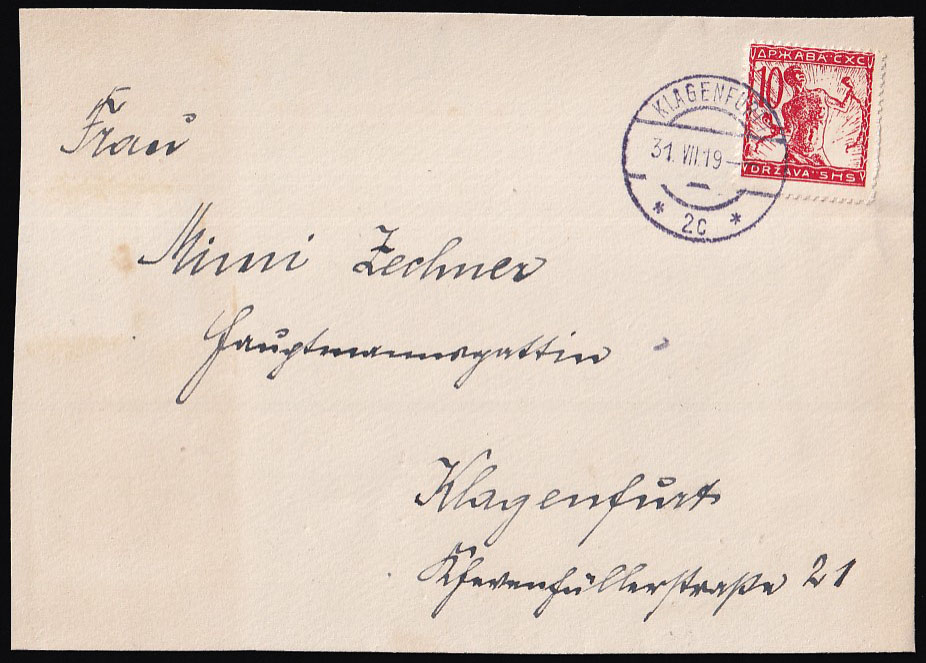 ДРЖАВА·СХС
10
DRŽAVA·SHS
KLAGENFURT
31. VII. 19
* 2c *
Frau
Mimi Zechner
Hauptmannsgattin
Klagenfurt
Khevenhüllerstraße 21